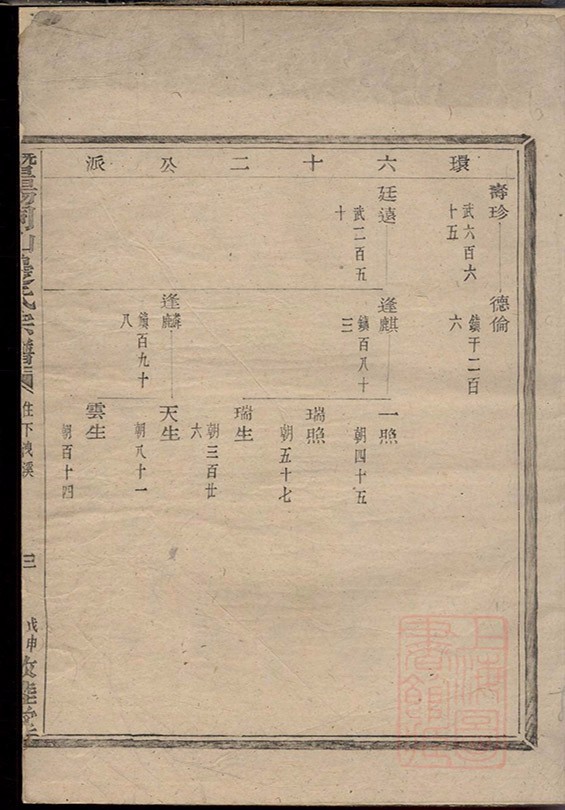 環六十二公派
壽珍
武六百六
十五
德倫
鎮千二百
六
廷遠
武二百五
十
逢麒
鎮百八十
三
一照
朝四十五
瑞照
朝五十七
瑞生
朝三百廿
六
逢麟
鎮百九十
八
天生
朝八十一
雲生
朝百十四
住下洩溪
三
戊申